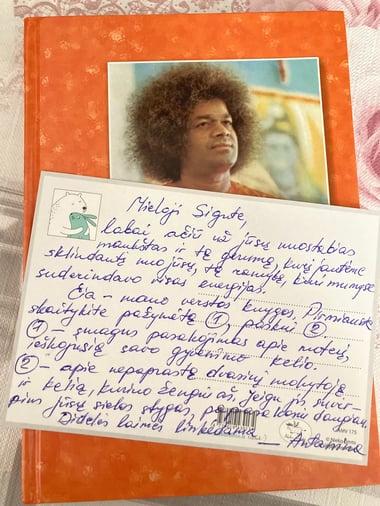 Mieloji Sigute,
labai ačiū už jūsų nuostabias
mankštas ir tą gerumą, kurį jautėme
sklindantį nuo jūsų, tą ramybę, kuri mumyse
suderindavo visas energijas.
Čia – mano verstos knygos. Pirmiausia
skaitykite pažymėtą 1, paskui 2
1 – smagus pasakojimas apie moterį,
ieškojusią savo gyvenimo kelio.
2 – apie nepaprastą dvasinį mokytoją
ir kelią, kuriuo žengiu aš. Jeigu jis suvir-
pins jūsų sielos stygas, papasakosiu daugiau.
Didelės laimės linkėdama – Antanina
175